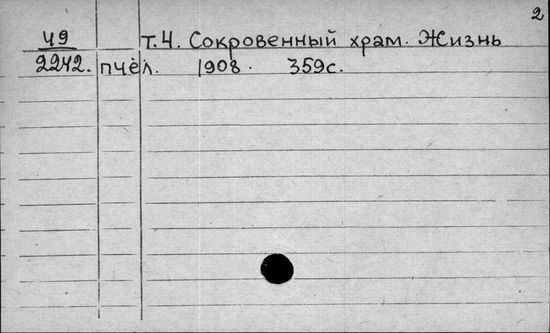 2
49 т.4. Сокровенный храм. Жизнь
2242. пчёл. 1908. 359с.